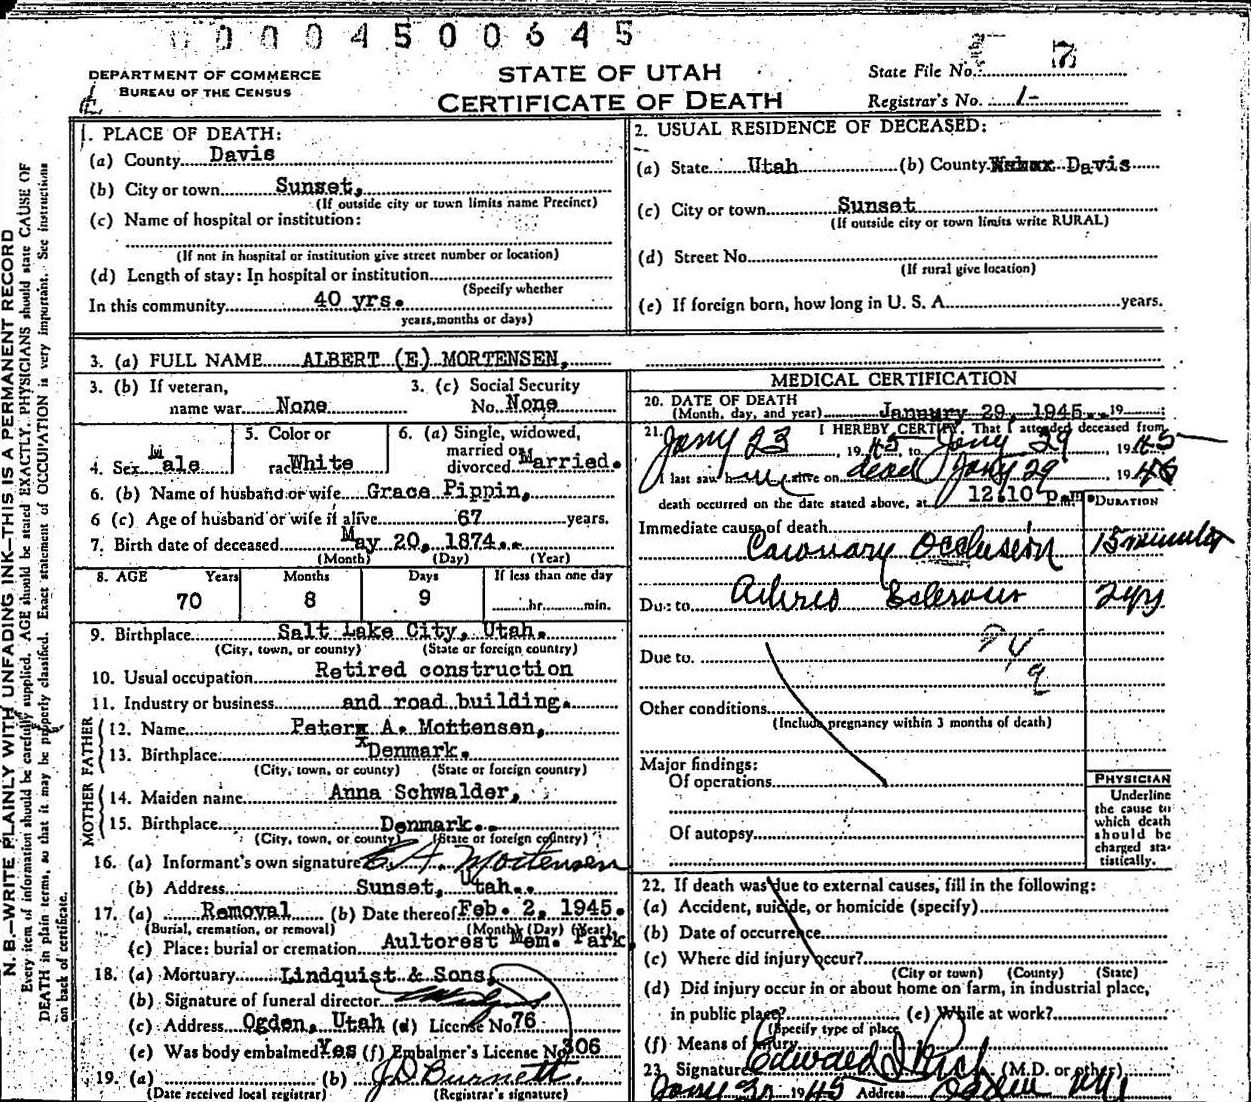 00004500645
DEPARTMENT OF COMMERCE
BUREAU OF THE CENSUS
STATE OF UTAH
CERTIFICATE OF DEATH
State File No. 7
Registrar's No. 1-
N.B.—WRITE PLAINLY WITH UNFADING INK—THIS IS A PERMANENT RECORD
Every item of information should be carefully supplied. AGE should be stated EXACTLY. PHYSICIANS should state CAUSE OF
DEATH in plain terms, so that it may be properly classified. Exact statement of OCCUPATION is very important. See instructions
on back of certificate.
1. PLACE OF DEATH:
(a) County Davis
(b) City or town Sunset,
(If outside city or town limits name Precinct)
(c) Name of hospital or institution:
(If not in hospital or institution give street number or location)
(d) Length of stay: In hospital or institution
(Specify whether
In this community 40 yrs.
years, months or days)
2. USUAL RESIDENCE OF DECEASED:
(a) State Utah (b) County Davis
(c) City or town Sunset
(If outside city or town limits write RURAL)
(d) Street No.
(If rural give location)
(e) If foreign born, how long in U. S. A. years.
3. (a) FULL NAME ALBERT (E) MORTENSEN,
3. (b) If veteran,
name war None
3. (c) Social Security
No. None
4. Sex Male
5. Color or
race White
6. (a) Single, widowed,
married or
divorced Married.
6. (b) Name of husband or wife Grace Pippin,
6 (c) Age of husband or wife if alive 67 years.
7. Birth date of deceased May 20, 1874..
(Month) (Day) (Year)
8. AGE Years Months Days If less than one day
70 8 9 hr. min.
9. Birthplace Salt Lake City, Utah.
(City, town, or county) (State or foreign country)
10. Usual occupation Retired construction
11. Industry or business and road building.
FATHER
12. Name Peter A. Mortensen,
13. Birthplace Denmark.
(City, town, or county) (State or foreign country)
MOTHER
14. Maiden name Anna Schwalder,
15. Birthplace Denmark..
(City, town, or county) (State or foreign country)
16. (a) Informant's own signature Mortensen
(b) Address Sunset, Utah..
17. (a) Removal (b) Date thereof Feb. 2, 1945.
(Burial, cremation, or removal) (Month) (Day) (Year)
(c) Place: burial or cremation Aultorest Mem. Park,
18. (a) Mortuary Lindquist & Sons,
(b) Signature of funeral director
(c) Address Ogden, Utah (d) License No. 76
(e) Was body embalmed? Yes (f) Embalmer's License No. 306
19. (a) (b) J D Burnett.
(Date received local registrar) (Registrar's signature)
MEDICAL CERTIFICATION
20. DATE OF DEATH
(Month, day, and year) January 29, 1945.. 19
21. I HEREBY CERTIFY, That I attended deceased from
Jany 23, 1945, to Jany 29 1945
I last saw him alive on dead Jany 29 1945
death occurred on the date stated above, at 12:10 p.m.
DURATION
Immediate cause of death
Coronary Occlusion 15 minutes
Due to Arterio Sclerosis 2 yrs
Due to
Other conditions
(Include pregnancy within 3 months of death)
Major findings:
Of operations
Of autopsy
PHYSICIAN
Underline
the cause to
which death
should be
charged sta-
tistically.
22. If death was due to external causes, fill in the following:
(a) Accident, suicide, or homicide (specify)
(b) Date of occurrence
(c) Where did injury occur?
(City or town) (County) (State)
(d) Did injury occur in or about home on farm, in industrial place,
in public place? (e) While at work?
(Specify type of place
(f) Means of injury
23. Signature Edward I Rich (M.D. or other)
Jany 31 1945 Address Ogden